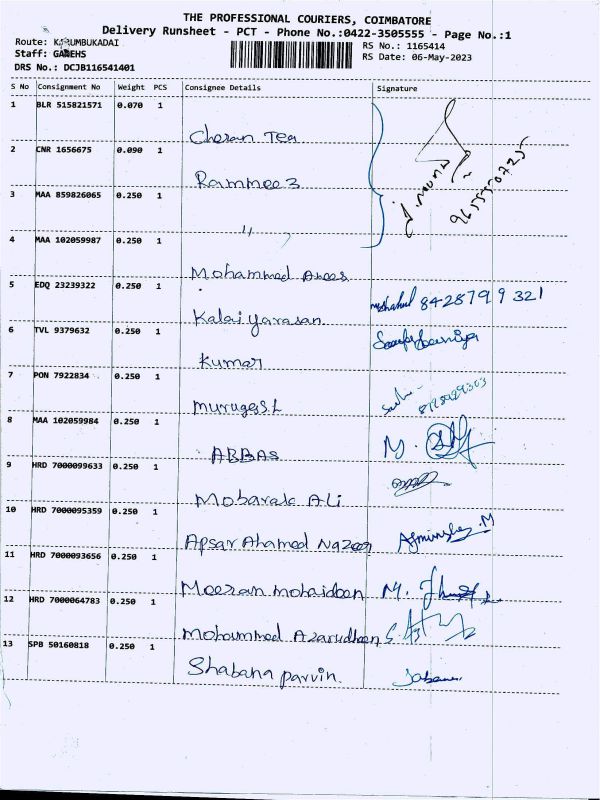 THE PROFESSIONAL COURIERS, COIMBATORE
Delivery Runsheet - PCT - Phone No.:0422-3505555 - Page No.:1
Route: KARUMBUKADAI
RS No.: 1165414
Staff: GANEHS
RS Date: 06-May-2023
DRS No.: DCJB116541401
S No Consignment No Weight PCS Consignee Details Signature
1 BLR 515821571 0.070 1
Cheran Tea
2 CNR 1656675 0.090 1
Rammee 3
9655550725
3 MAA 859826065 0.250 1
"
4 MAA 102059987 0.250 1
Mohammed Anees
5 EDQ 23239322 0.250 1
8428799321
Kalaiyarasan
6 TVL 9379632 0.250 1
Kumar
7 PON 7922834 0.250 1
Muruges.L
8 MAA 102059984 0.250 1
ABBAS
M.
9 HRD 7000099633 0.250 1
Mobarak Ali
10 HRD 7000095359 0.250 1
Apsar Ahamed Nazeer
11 HRD 7000093656 0.250 1
Meeran mohaideen
M.
12 HRD 7000064783 0.250 1
Mohammed Azarudheen
13 SPB 50160818 0.250 1
Shabana parvin.